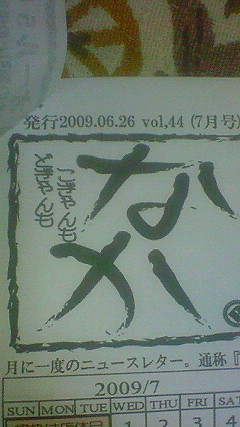 発行2009.06.26 vol,44 (7月号)
なか
こきゃんも
ときゃんも
月に一度のニュースレター。通称『
2009/7
SUN MON TUE WED THU FRI SAT
1 2 3 4